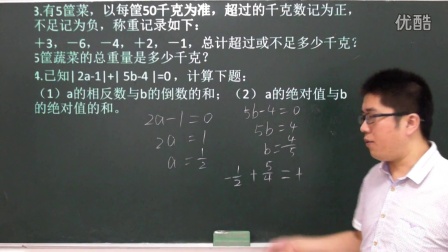 3.有5筐菜，以每筐50千克为准，超过的千克数记为正，
不足记为负，称重记录如下：
+3，-6，-4，+2，-1，总计超过或不足多少千克？
5筐蔬菜的总重量是多少千克？
4.已知| 2a-1|+| 5b-4 |=0 ，计算下题：
（1）a的相反数与b的倒数的和；（2） a的绝对值与b
的绝对值的和。
2a-1=0
2a=1
a=1/2
5b-4=0
5b=4
b=4/5
-1/2+5/4=+
优酷